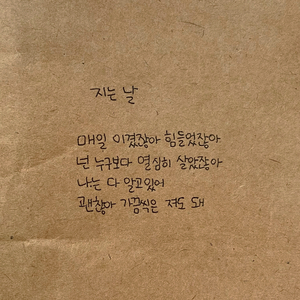 지는 날
매일 이겼잖아 힘들었잖아
넌 누구보다 열심히 살았잖아
나는 다 알고있어
괜찮아 가끔씩은 져도 돼